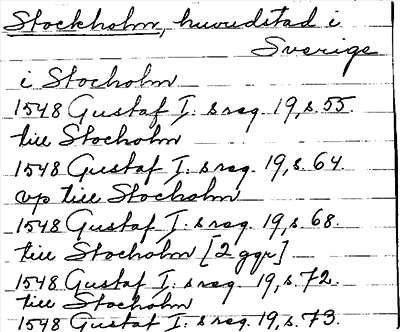 Stockholm, huvudstad i
Sverige
i Stocholm
1548 Gustaf I: s reg. 19, s. 55.
till Stocholm
1548 Gustaf I: s reg. 19, s. 64.
vp till Stocholm
1548 Gustaf I: s reg. 19, s. 68.
till Stocholm [2 ggr]
1548 Gustaf I: s reg. 19, s. 72.
till Stocholm
1548 Gustaf I: s reg. 19, s. 73.